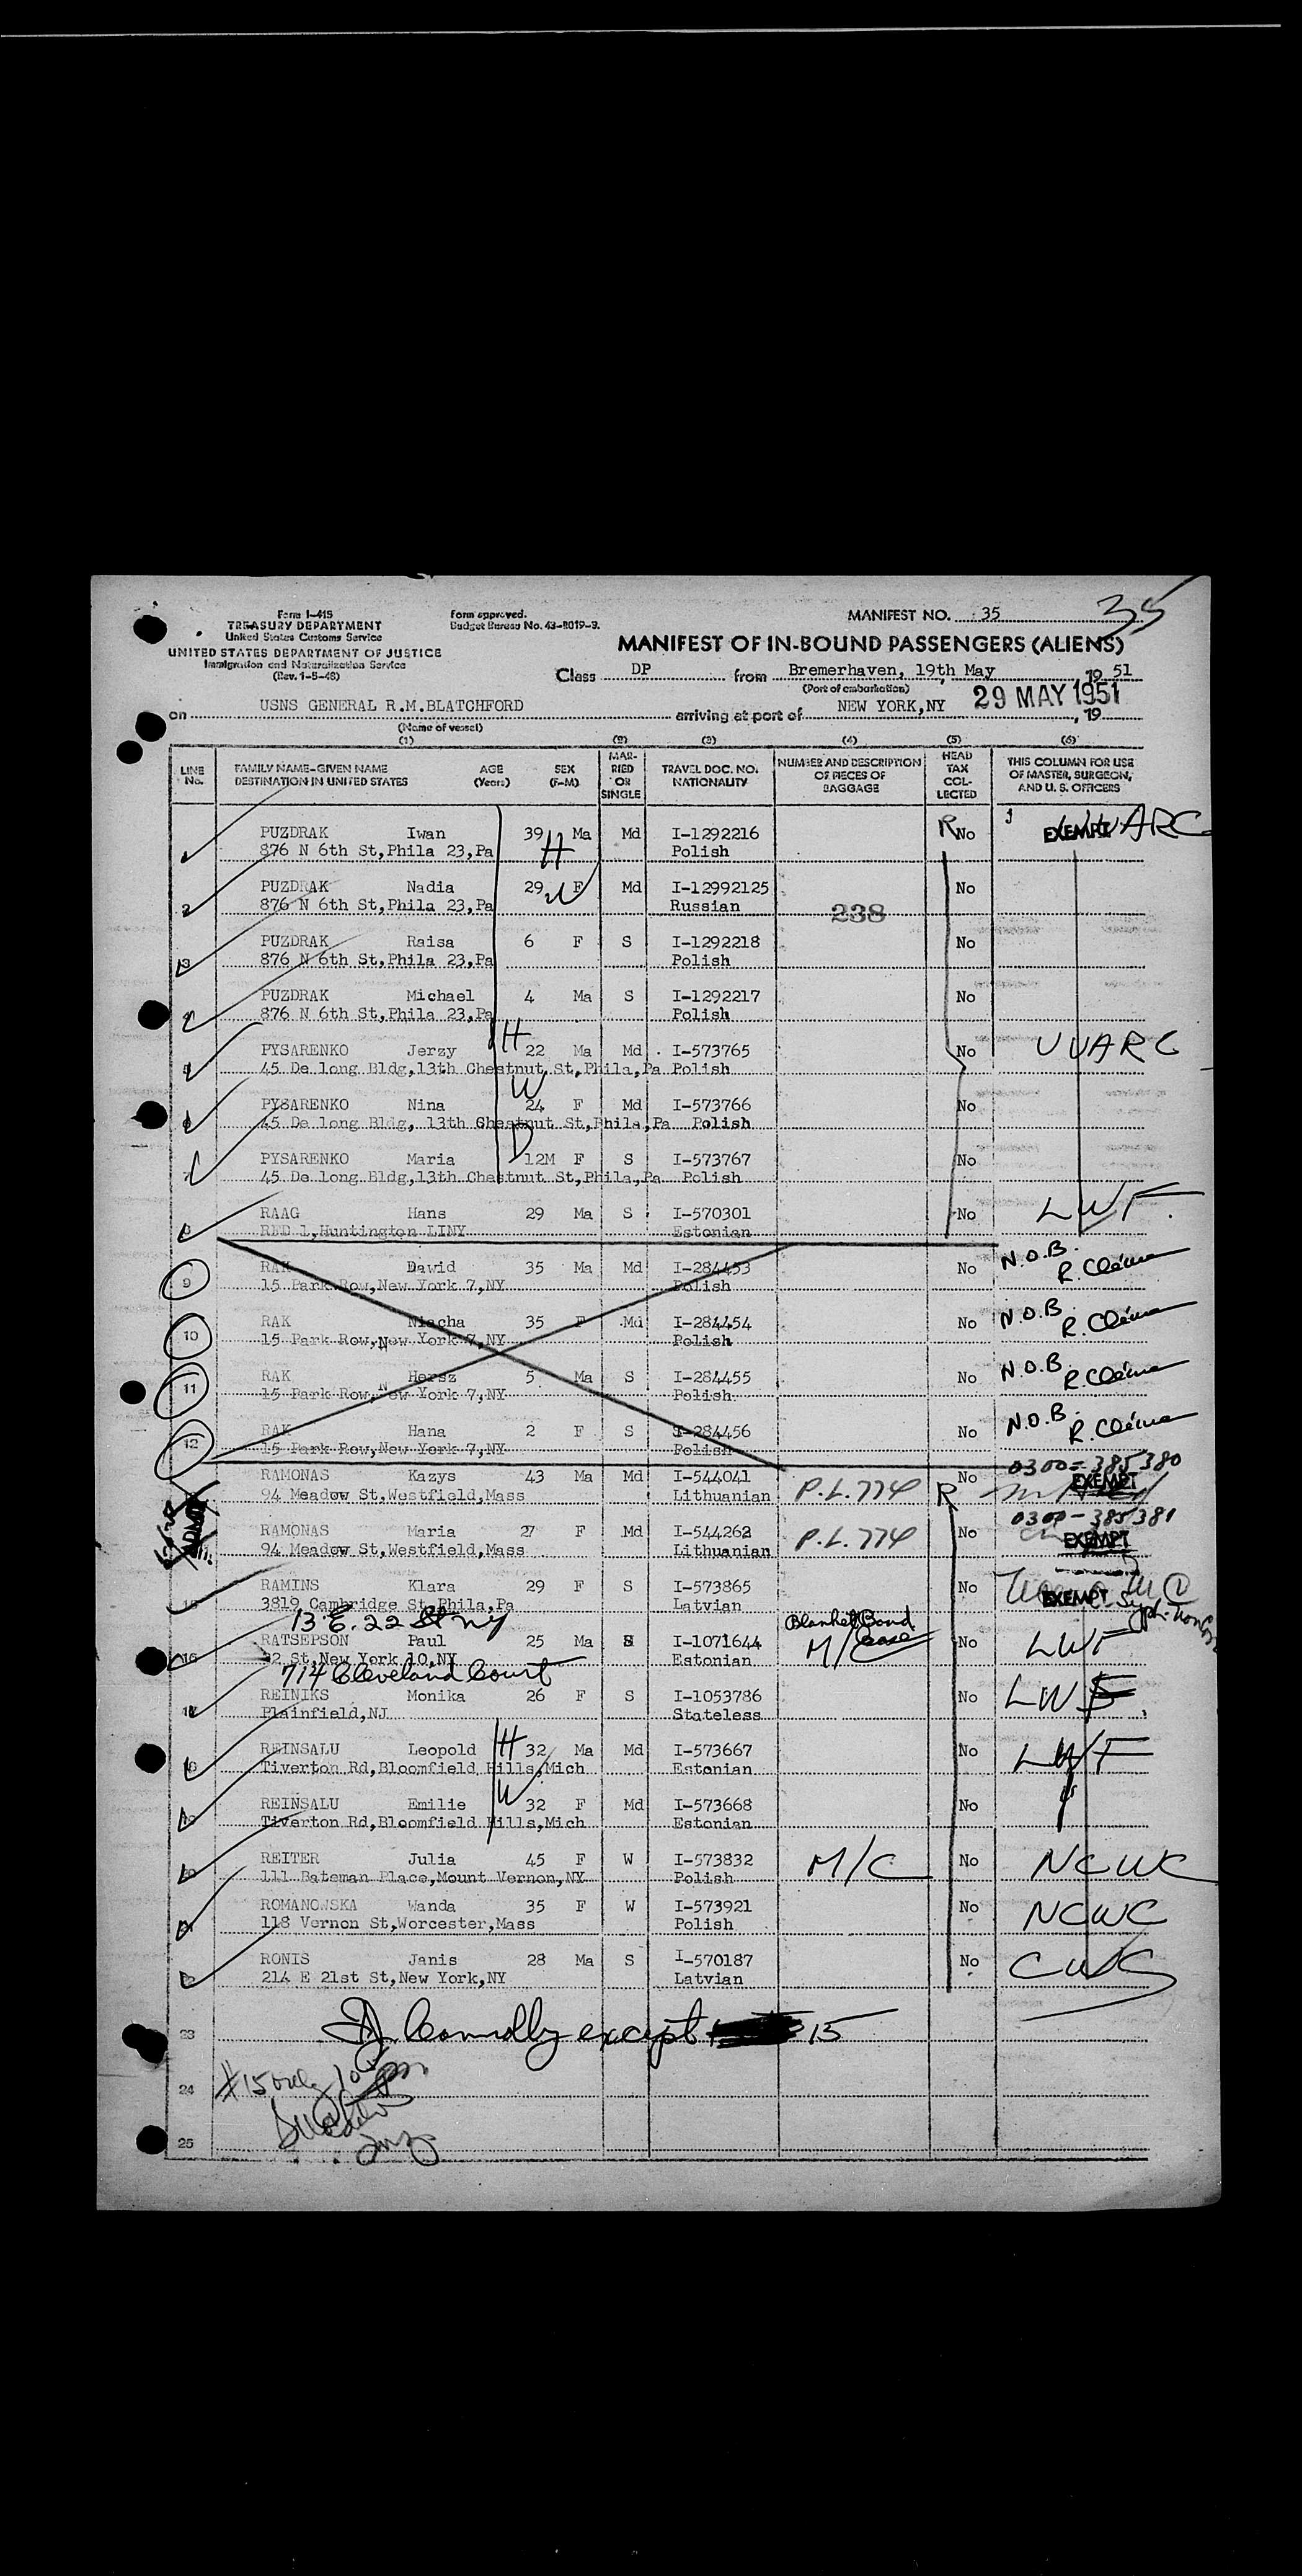 Form I-415
TREASURY DEPARTMENT
United States Customs Service
UNITED STATES DEPARTMENT OF JUSTICE
Immigration and Naturalization Service
(Rev. 1-5-48)
Form approved.
Budget Bureau No. 43-R019-3.
MANIFEST NO. 35
35
MANIFEST OF IN-BOUND PASSENGERS (ALIENS)
Class DP from Bremerhaven, 19th May 19 51
(Port of embarkation)
on USNS GENERAL R.M.BLATCHFORD arriving at port of NEW YORK,NY 29 MAY 1951, 19
(Name of vessel)
(1) (2) (3) (4) (5) (6)
LINE No. FAMILY NAME-GIVEN NAME DESTINATION IN UNITED STATES AGE (Years) SEX (F-M) MARRIED OR SINGLE TRAVEL DOC. NO. NATIONALITY NUMBER AND DESCRIPTION OF PIECES OF BAGGAGE HEAD TAX COLLECTED THIS COLUMN FOR USE OF MASTER, SURGEON, AND U. S. OFFICERS
PUZDRAK Iwan 39 Ma Md I-1292216 R No EXEMPT UUARC
1 876 N 6th St,Phila 23,Pa H Polish
PUZDRAK Nadia 29 F Md I-12992125 No
2 876 N 6th St,Phila 23,Pa W Russian 238
PUZDRAK Raisa 6 F S I-1292218 No
3 876 N 6th St,Phila 23,Pa Polish
PUZDRAK Michael 4 Ma S I-1292217 No
4 876 N 6th St,Phila 23,Pa Polish
PYSARENKO Jerzy H 22 Ma Md I-573765 No UUARC
5 45 De long Bldg,13th Chestnut St,Phila,Pa Polish
PYSARENKO Nina W 24 F Md I-573766 No
6 45 De long Bldg, 13th Chestnut St,Phila,Pa Polish
PYSARENKO Maria D 12M F S I-573767 No
7 45 De long Bldg,13th Chestnut St,Phila,Pa Polish
RAAG Hans 29 Ma S I-570301 No LWF
8 RED 1,Huntington LINY Estonian
RAK Dawid 35 Ma Md I-284453 No N.O.B.
9 15 Park Row,New York 7,NY Polish R. Cléma
RAK Niacha 35 F Md I-284454 No N.O.B.
10 15 Park Row,New York 7,NY Polish R. Cléma
RAK Hersz 5 Ma S I-284455 No N.O.B.
11 15 Park Row,New York 7,NY Polish R. Cléma
RAK Hana 2 F S I-284456 No N.O.B.
12 15 Park Row,New York 7,NY Polish R. Cléma
0300-385380
RAMONAS Kazys 43 Ma Md I-544041 No EXEMPT
94 Meadow St,Westfield,Mass Lithuanian P.L.774 R
0300-385381
RAMONAS Maria 27 F Md I-544262 No EXEMPT
94 Meadow St,Westfield,Mass Lithuanian P.L.774
RAMINS Klara 29 F S I-573865 No EXEMPT
15 3819 Cambridge St,Phila,Pa Latvian
13 E. 22 St NY Blanket Bond
RATSEPSON Paul 25 Ma S I-1071644 M/Case No LWF
16 22 St,New York 10,NY Estonian
714 Cleveland Court
REINIKS Monika 26 F S I-1053786 No LWF
17 Plainfield,NJ Stateless
REINSALU Leopold H 32 Ma Md I-573667 No LWF
18 Tiverton Rd,Bloomfield Hills,Mich Estonian
REINSALU Emilie W 32 F Md I-573668 No
19 Tiverton Rd,Bloomfield Hills,Mich Estonian
REITER Julia 45 F W I-573832 M/C No NCWC
20 111 Bateman Place,Mount Vernon,NY Polish
ROMANOWSKA Wanda 35 F W I-573921 No NCWC
21 118 Vernon St,Worcester,Mass Polish
RONIS Janis 28 Ma S I-570187 No CWS
22 214 E 21st St,New York,NY Latvian
23 Connolly except 15
24 #15 only
25